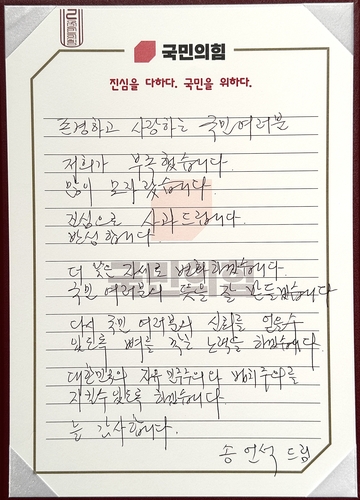 국민의힘
진심을 다하다. 국민을 위하다.
존경하고 사랑하는 국민여러분
저희가 부족했습니다.
많이 모자랐습니다
진심으로 사과드립니다.
반성합니다
더 낮은 자세로 변화하겠습니다.
국민 여러분의 뜻을 잘 받들겠습니다
다시 국민 여러분의 신뢰를 얻을수
있도록 뼈를 깎는 노력을 하겠습니다.
대한민국의 자유 민주주의와 법치주의를
지킬수있도록 하겠습니다
늘 감사합니다.
송언석 드림
국민의힘